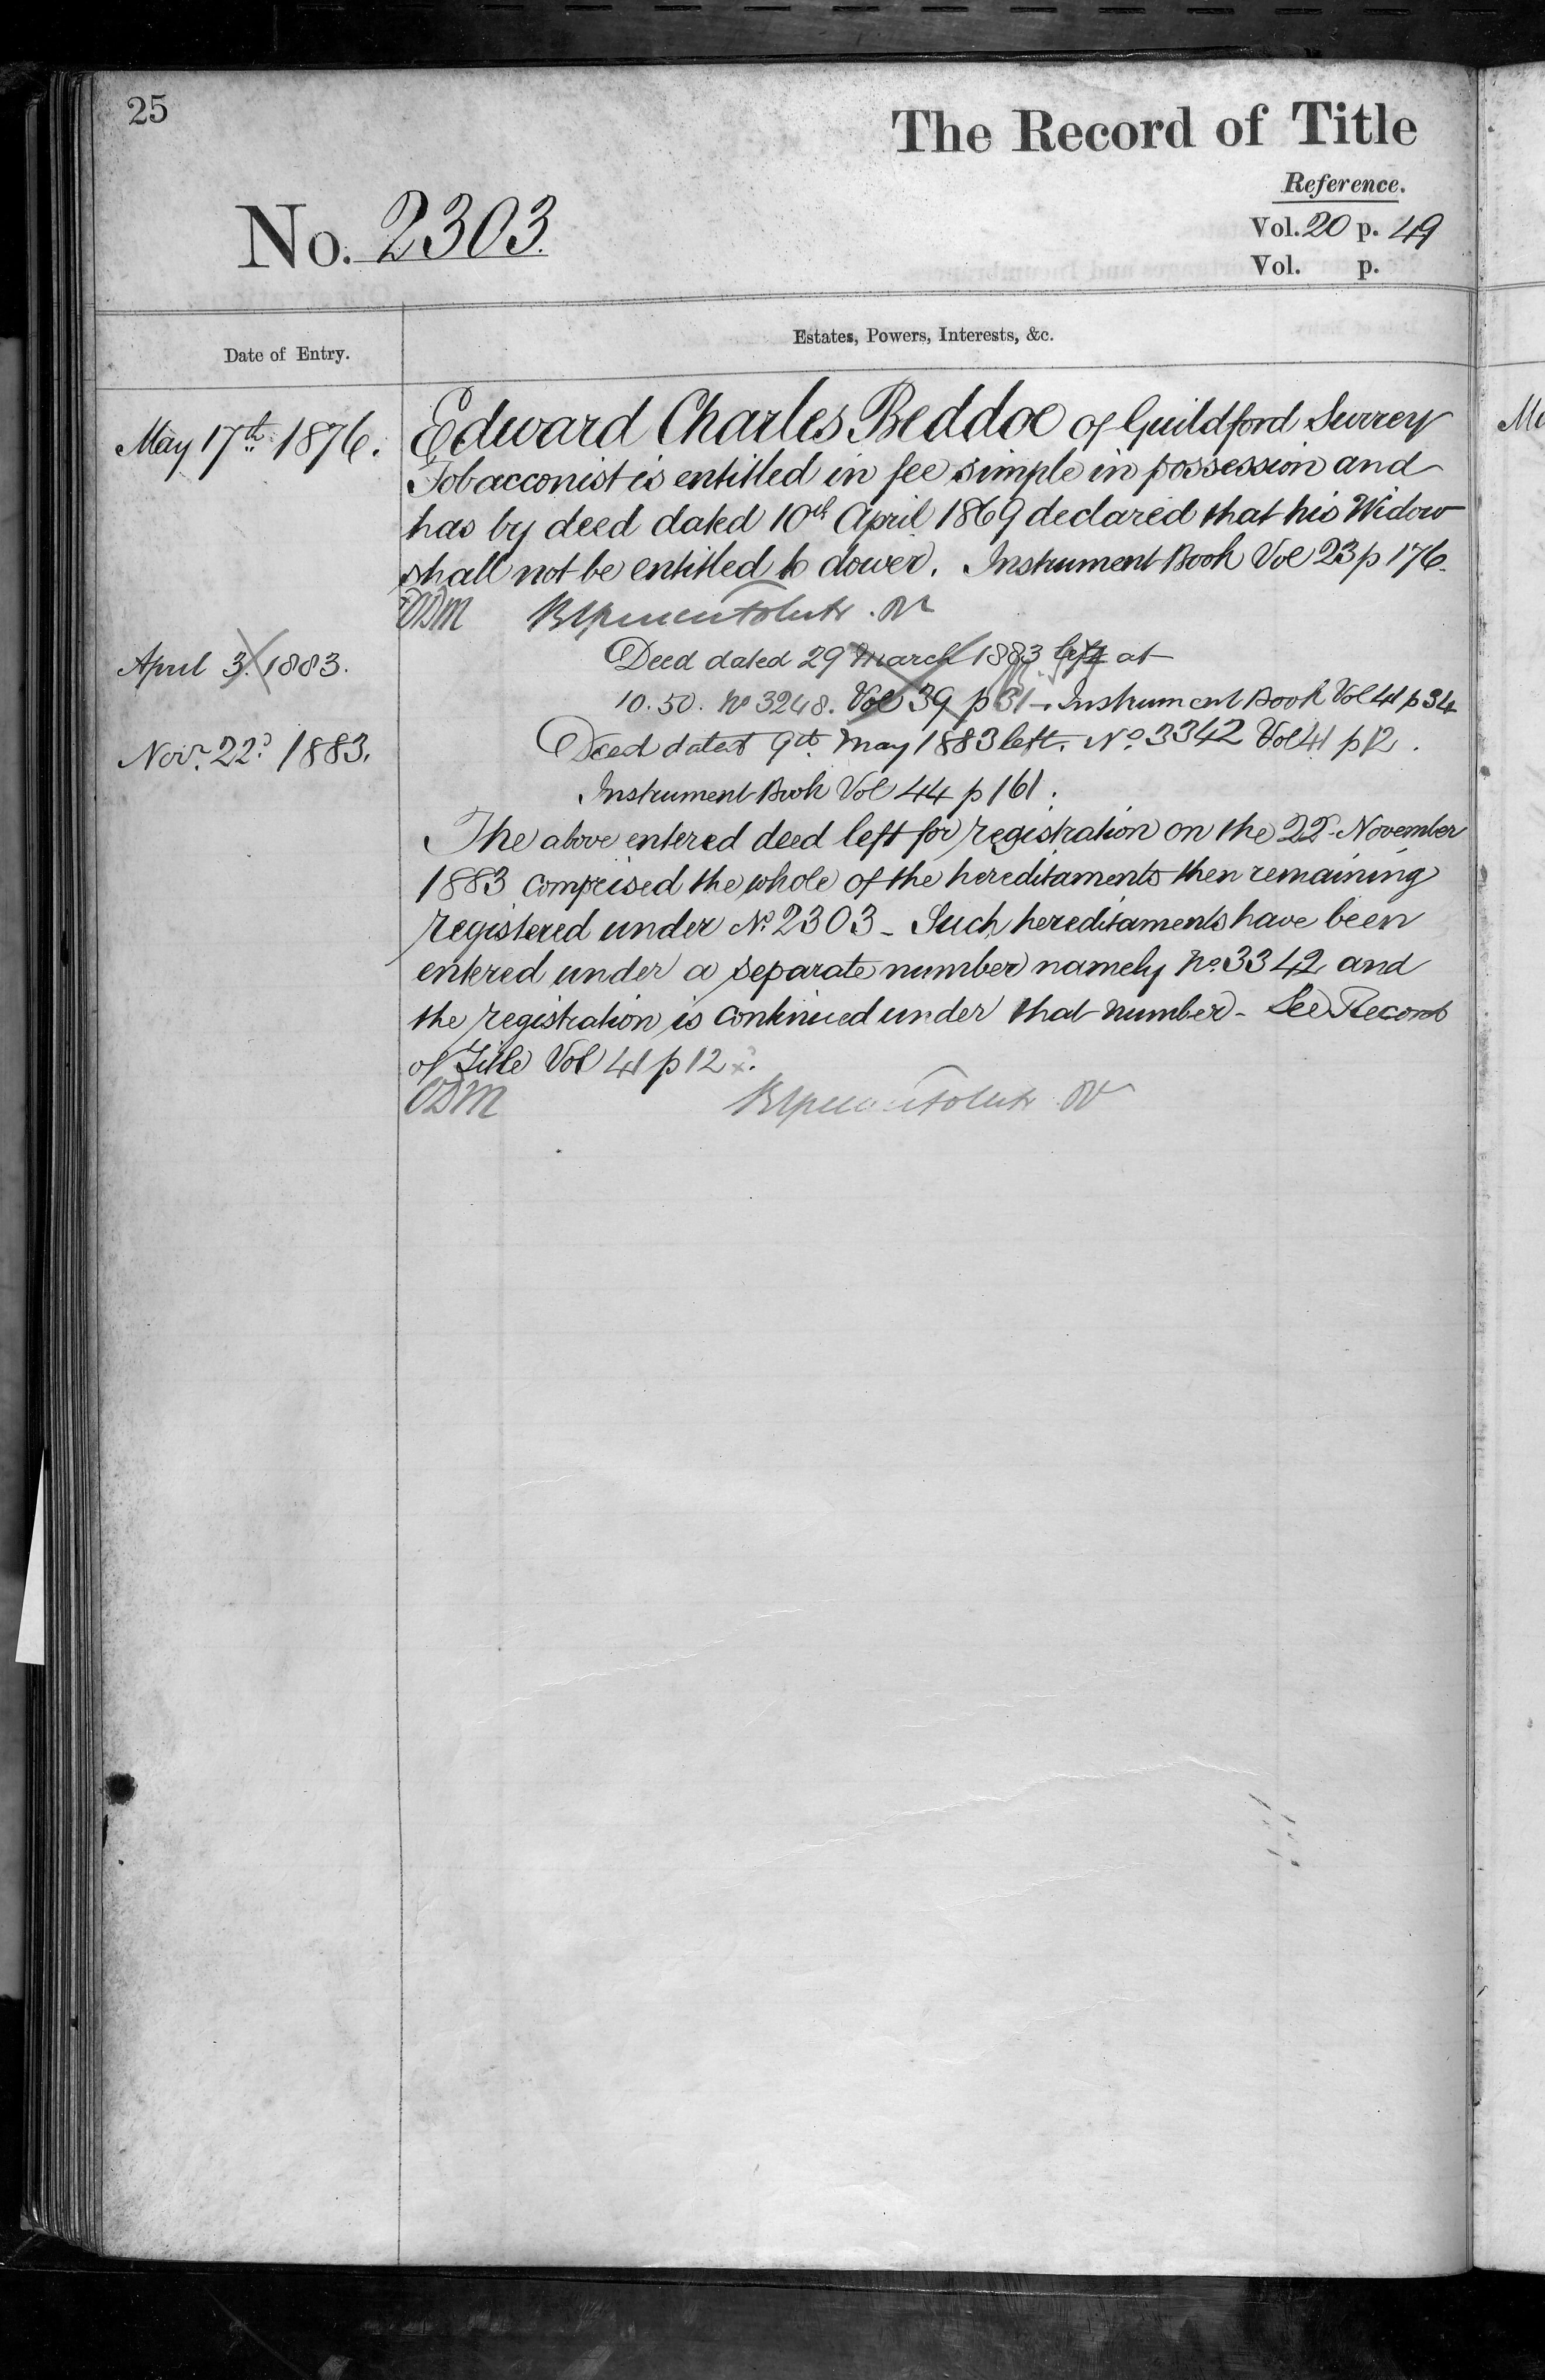 25
The Record of Title
Reference.
No. 2303.
Vol. 20 p. 49
Vol. p.
Date of Entry.
Estates, Powers, Interests, &c.
May 17th 1876.
Edward Charles Beddoe of Guildford Surrey
Tobacconist is entitled in fee simple in possession and
has by deed dated 10th April 1869 declared that his Widow
shall not be entitled to dower. Instrument Book Vol 23 p 176.
April 3. 1883.
Deed dated 29 March 1883 left at
10.50. No 3248. Vol 39 p 31 - Instrument Book Vol 41 p 34
Novr. 22d 1883.
Deed dated 9th May 1883 left. No. 3342 Vol 41 p 12.
Instrument Book Vol 44 p 161.
The above entered deed left for registration on the 22d November
1883 comprised the whole of the hereditaments then remaining
registered under No. 2303 - Such hereditaments have been
entered under a separate number namely No. 3342 and
the registration is continued under that number - See Record
of Title Vol 41 p 12.